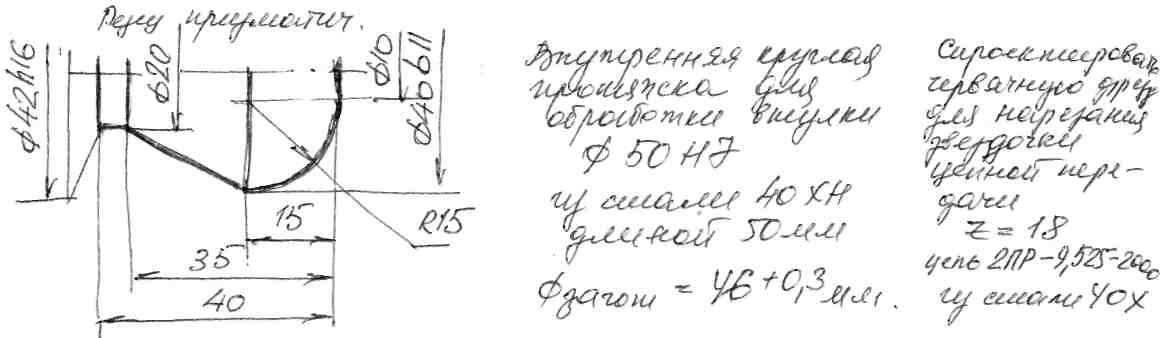 Резец призматич.
ф42h16
ф20
ф10
ф40b11
R15
15
35
40
Внутренняя круглая
протяжка для
обработки втулки
ф 50 H7
из стали 40ХН
длиной 50мм
ф загот = 46 +0,3 мм.
Спроектировать
червячную фрезу
для нарезания
звездочки
цепной пере-
дачи
z = 18
цепь 2ПР-9,525-2000
из стали 40Х